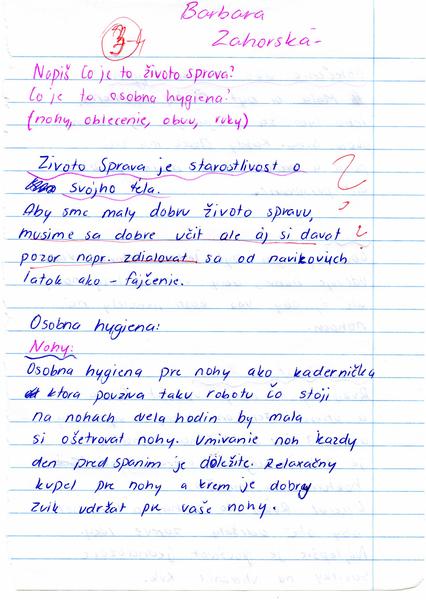 Barbara
Zahorská
3-4
Napiš Čo je to životo sprava?
Čo je to osobna hygiena?
(nohy, oblecenie, obuv, ruky)
Životo Sprava je starostlivost o
svojho tela.
Aby sme maly dobru životo spravu,
musime sa dobre učit ale aj si davat
pozor napr. zdialovat sa od navikovich
latok ako - fajčenie.
Osobna hygiena:
Nohy:
Osobna hygiena pre nohy ako kadernička
ktora použiva taku robotu čo stoji
na nohach vela hodin by mala
si ošetrovat nohy. Umivanie noh každy
den pred spanim je dôležite. Relaxačny
kupel pre nohy a krem je dobry
zvik udržat pre vaše nohy.